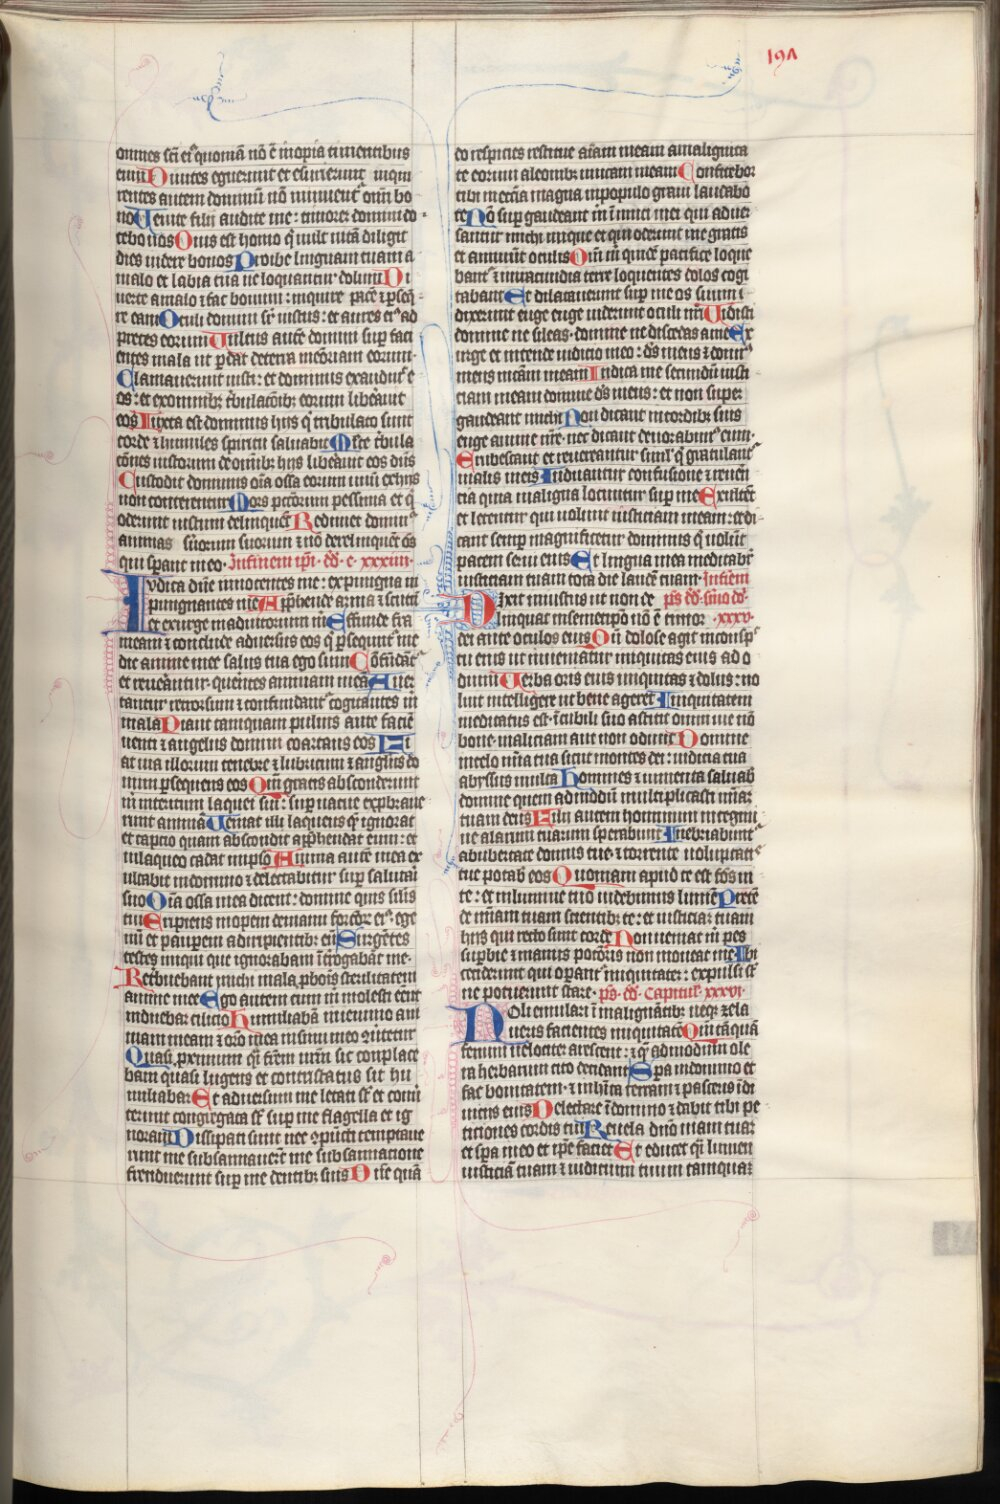 19Λ
omnes sc̄i eiꝰ quoniā nō ē inopia timentibus
eum Diuites eguerunt et esurierunt inqui
rentes autem dominū nō minuent᷑ om̄i bo
no Uenite filij audite me: timorē domini do
cebo uos Quis est homo q̄ uult uitā diligit
dies uidere bonos Prohibe linguam tuam a
malo et labia tua ne loquantur dolum Di
uerte a malo ⁊ fac bonum: inquire pacē ⁊ ꝑseq̄
re eam Oculi domini sr̄ iustos: et aures eiꝰ ad
preces eorum Uultus autē domini suꝑ faci
entes mala ut ꝑdat de terra mēoriam eorum·
Clamauerunt iusti: et dominus exaudiuit e
os: et ex omnibꝫ t̄bulac̄oibꝫ eorum libēauit
eos Iuxta est dominus hijs q̄ tribulato sunt
corde ⁊ humiles spiritu saluabit Mlte t̄bula
c̄ones iustorum de om̄ibꝫ hijs libēauit eos dn̄s
Custodit dominus oīa ossa eorum unū ex hijs
non conteretur Mors pcc̄orum pessima et q̄
oderunt iustum delinquēt Redimet dominꝰ
animas suorum suorum ⁊ nō derelinquēt ōs
qui sꝑant in eo· In finem ip̄i· dd̄· c· xxxiiii·
Iudica dn̄e nocentes me: expungna in
pungnantes me Apꝑhende arma ⁊ scutū
et exurge in adiutorium m̄ Effunde fra
meam ⁊ conclude aduersus eos q̄ ꝑsequnt᷑ me
dic anime mee salus tua ego sum Cōfūdāt᷑
et reuēantur· quentes animam meā Auer
tantur retrorsum ⁊ confundant᷑ cogitantes m̄
mala Fiant tamquam puluis ante faciē
uenti ⁊ angelus domini coartans eos Fi
at uia illorum tenebre ⁊ lubricum ⁊ anglus do
mini ꝑsequens eos Qm̄ gratis absconderunt
m̄ interitum laquei sui: suꝑ uacue expb̄raue
runt animā Ueniat illi laqueus q̄ ignorat
et captio quam abscondit apꝑhendat eum: et
in laqueo cadat in ipso Anima autē mea ex
ultabit in domino ⁊ delectabitur suꝑ salutari
suo Oīa ossa mea dicent: domine quis silis
tui Eripiens inopem de manu forc̄oꝝ eiꝰ ege
nū et pauperem a diripientibꝫ eū Surgētes
testes iniqui que ignorabam īt̄rogabāt me·
Ret̄buebant michi mala ꝓ bois sterilitatem
anime mee Ego autem cum m̄ molesti eēnt
induebar cilicio Humiliabā in ieiunio ani
mam meam ⁊ orō mea in sinu meo ↄuertetur
Quasi ꝓximum q̄i frēm nr̄m sic conplace
bam quasi lugens et contristatus sic hu
miliabar Et aduersum me letati st̄ et conu
enerunt congregata st̄ suꝑ me flagella et ig
noraui Dissipati sunt nec ↄpūcti temptaue
runt me subsannauert̄ me subsannacione
frenduerunt suꝑ me dentibꝫ suis Dn̄e quā
do respicies restitue aīam meam a malignita
te eorum a leonibꝫ unicam meam Confitebor
tibi in ecc̄ia magna in populo graui laudabo
te Nō suꝑ gaudeant m̄ inimici mei qui aduer
santur michi inique et qui oderunt me gratis
et annuūt oculis Qm̄ m̄ quidē pacifice loque
bant᷑ ⁊ in iracundia terre loquentes dolos cogi
tabant Et dilatauerunt suꝑ me os suum ⁊
dixerunt euge euge uiderunt oculi nr̄i Uidisti
domine ne sileas· domine ne discedas a me Ex
urge et intende iudicio meo: dꝰs meus ⁊ dominꝰ
meus in cām meam Iudica me secundū iusti
ciam meam domine dꝰs meus: et non super
gaudeant michi Non dicant in cordibꝫ suis
euge anime nr̄e· nec dicant deuorabimꝰ eum·
Erubescant et reuereantur simĺ q̄ gratulant᷑
malis meis Induantur confusione ⁊ reuen̄
cia q̄ui maligna locuntur suꝑ me Exultēt
et letentur qui uolunt iusticiam meam: ⁊ di
cant semꝑ magnificetur dominus q̄ uolūt
pacem serui eius Et lingua mea meditabr̄
iusticiam tuam tota die laudē tuam· In finem
Dixit iniustus ut non de ps̄ dd̄· suīo dd̄·
linquat in semetipō nō ē timor ·xxxv·
dei ante oculos eius Qm̄ dolose agit in consꝑ
tu eius ut inueniatur iniquitas eius ad o
dium Uerba oris eius iniquitas ⁊ dolus: no
luit intelligere ut bene ageret Iniquitatem
meditatus est· ī cubili suo astitit omni uie nō
bone· maliciam aut̄ non odiuit Domine
in celo mīa tua sicut montes dei: iudicia tua
abyssus multa Homines ⁊ iumenta saluab̄
domine quem ad modū multiplicasti mīaꝫ
tuam deus Filij autem hominum in tegmi
ne alarum tuarum sperabunt Inebriabunt᷑
ab ubertate domus tue· ⁊ torrente uoluptatis
tue potab̄ eos Quoniam apud te est fōs ui
te: et in lumine tuo uidebimus lumē Pretē
de mīam tuam scientibꝫ te: et iusticiaꝫ tuam
hijs qui recto sunt corde Non ueniat m̄ pes
suꝑbie ⁊ manus pcc̄oris non moueat me Ibi
ceciderunt qui oꝑant᷑ iniquitateꝫ: expulsi st̄
ne potuerunt stare· ps̄· dd̄· Capitulꝰ xxxvi·
Noli emulari ī malignātibꝫ: neqꝫ zela
ueris facientes iniquitatē Qm̄ tāquā
fenum uelociter arescent: ⁊ q̄ admodum ole
ra herbarum cito decident Sꝑa in domino et
fac bonitatem· ⁊ in hīta terram ⁊ pasceris ī di
uiciis eius Delectare ī domino ⁊ dabit tibi pe
ticiones cordis tui Reuela dn̄o uiam tuaꝫ
et sꝑa in eo et ip̄e faciet Et educet q̄i lumen
iusticiā tuam ⁊ iudicium tuum tamquaꝫ